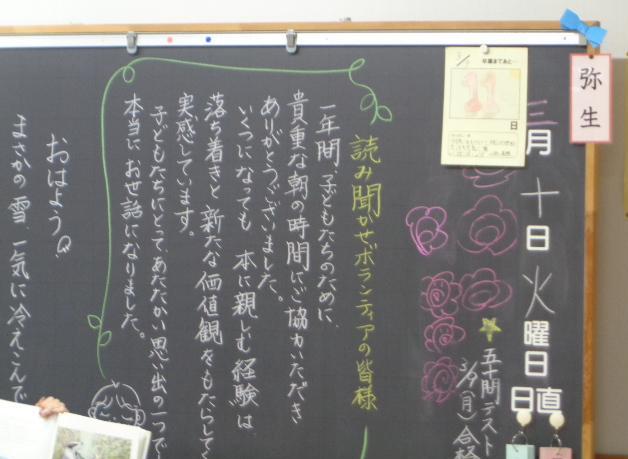 弥生
三月十日火曜日
日直
卒業まであと…
11
日
五十問テスト
3/9(月)合格
読み聞かせボランティアの皆様
一年間、子どもたちのために、
貴重な朝の時間にご協力いただき
ありがとうございました。
いくつになっても、本に親しむ経験は
落ち着きと新たな価値観をもたらしてく
実感しています。
子どもたちにとって、あたたかい思い出の一つで
本当にお世話になりました。
おはよう
まさかの雪、一気に冷えこんで